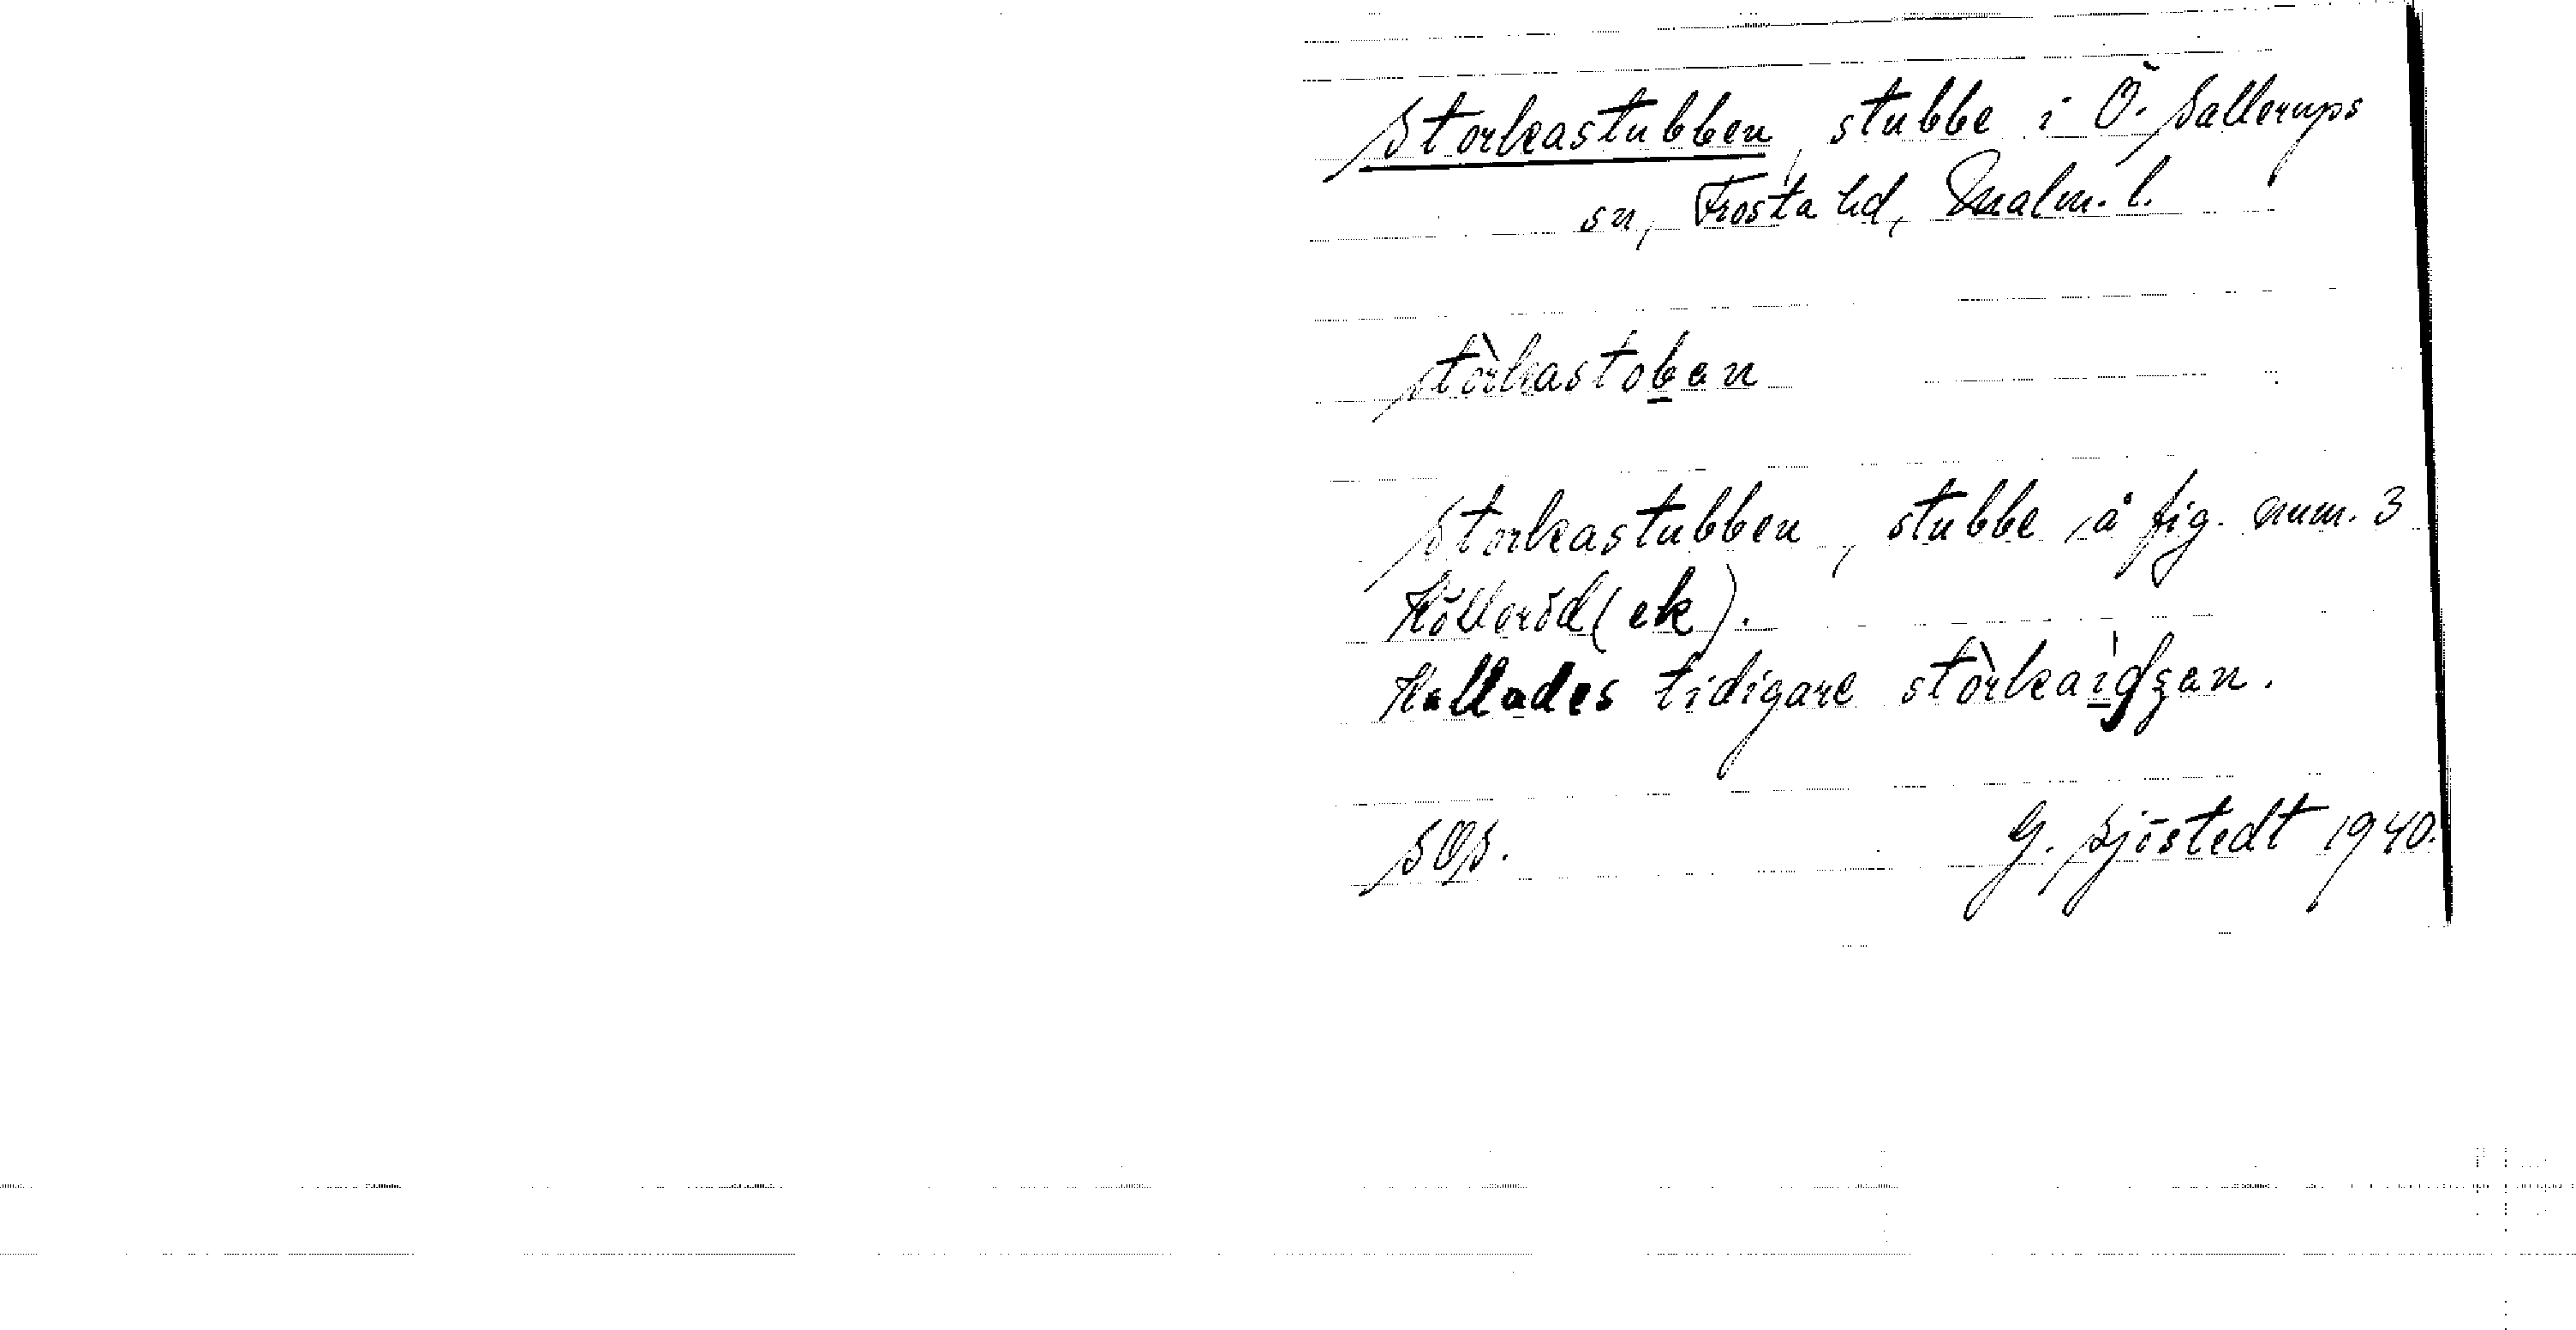 Storkastubben, stubbe i Ö. Sallerups
sn, Frosta hd, Malm. l.
stòrkastoban
Storkastubben, stubbe å fig. num. 3
Hölleröd (ek).
Kallades tidigare
SOS. G. Sjöstedt 1940.